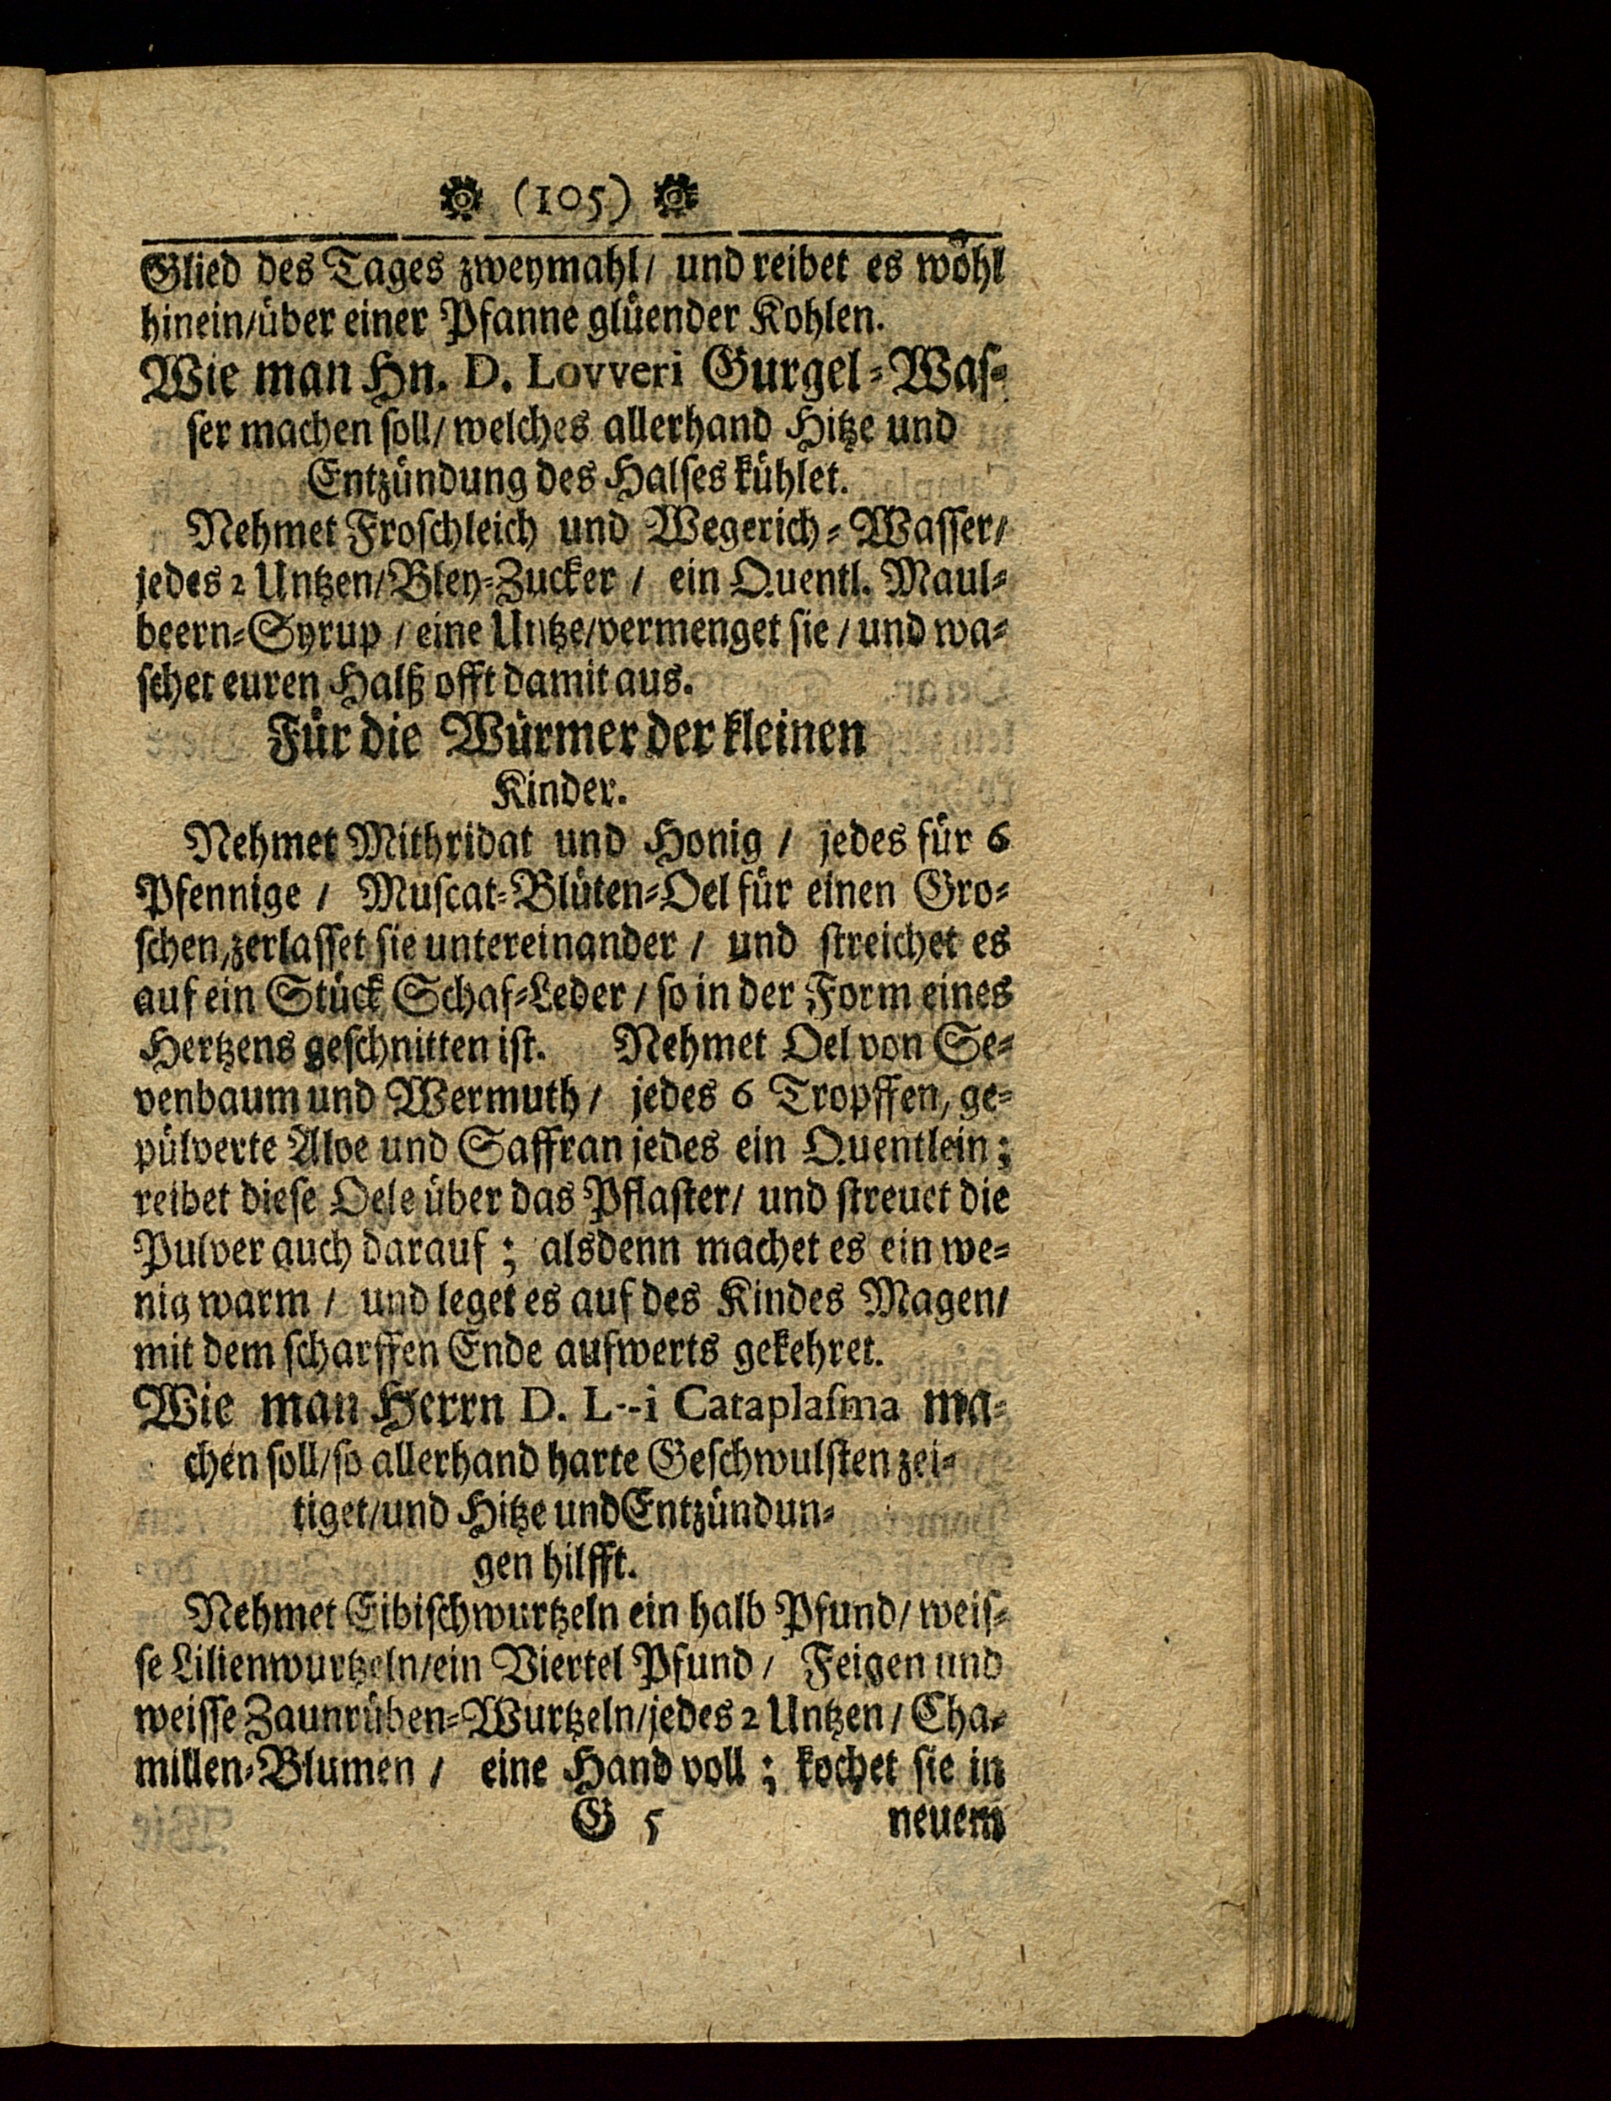 (105)
Glied des Tages zweymahl/ und reibet es wohl
hinein/über einer Pfanne glüender Kohlen.
Wie man Hn. D. Lovveri Gurgel-Was-
ser machen soll/welches allerhand Hitze und
Entzündung des Halses kühlet.
Nehmet Froschleich und Wegerich-Wasser/
jedes 2 Untzen/Bley-Zucker / ein Quentl. Maul-
beern-Syrup / eine Untze/vermenget sie / und wa-
schet euren Halß offt damit aus.
Für die Würmer der kleinen
Kinder.
Nehmet Mithridat und Honig / jedes für 6
Pfennige / Muscat-Blüten-Oel für einen Gro-
schen/zerlasset sie untereinander / und streichet es
auf ein Stück Schaf-Leder / so in der Form eines
Hertzens geschnitten ist. Nehmet Oel von Se-
venbaum und Wermuth / jedes 6 Tropffen, ge-
pülverte Aloe und Saffran jedes ein Quentlein;
reibet diese Oele über das Pflaster/ und streuet die
Pulver auch darauf; alsdenn machet es ein we-
nig warm / und leget es auf des Kindes Magen/
mit dem scharffen Ende aufwerts gekehret.
Wie man Herrn D. L--i Cataplasma ma-
chen soll/so allerhand harte Geschwulsten zei-
tiget/und Hitze und Entzündun-
gen hilfft.
Nehmet Eibischwurtzeln ein halb Pfund/ weis-
se Lilienwurtzeln/ein Viertel Pfund / Feigen und
weisse Zaunrüben-Wurtzeln/jedes 2 Untzen / Cha-
millen-Blumen / eine Hand voll; kochet sie in
G 5 neuem